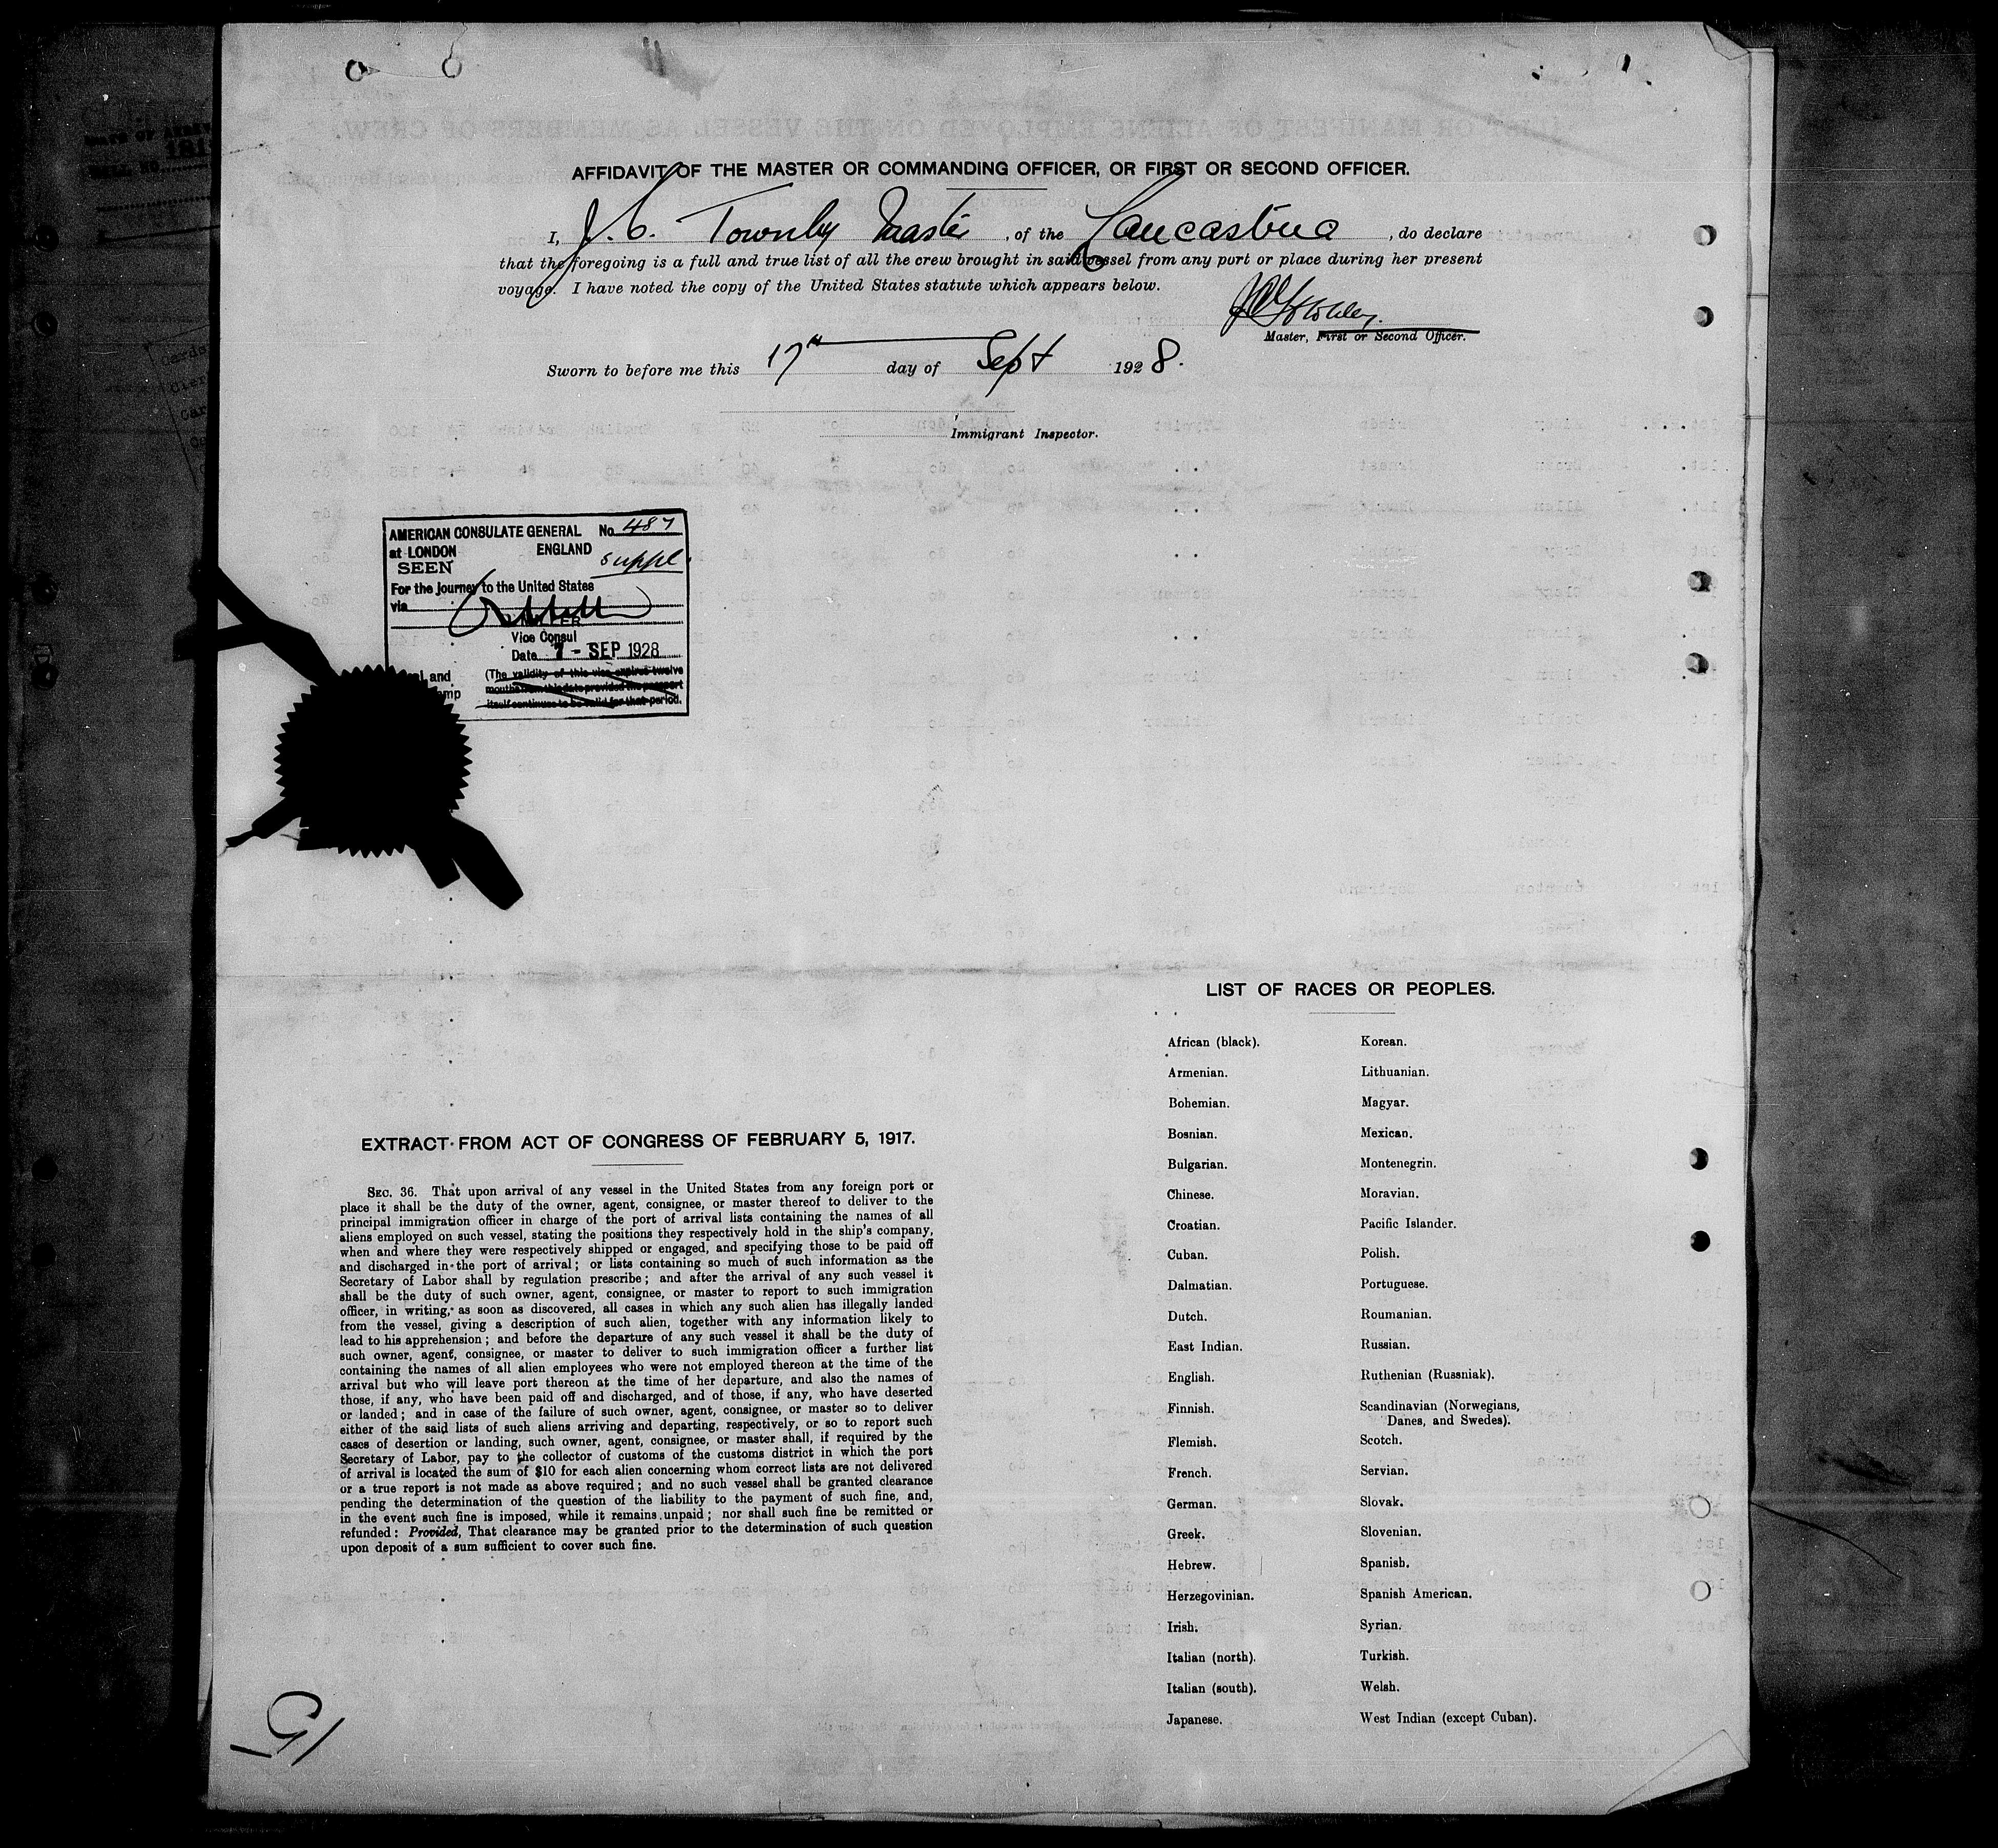 AFFIDAVIT OF THE MASTER OR COMMANDING OFFICER, OR FIRST OR SECOND OFFICER.
I, J. C. Townley Master, of the Lancastria, do declare
that the foregoing is a full and true list of all the crew brought in said vessel from any port or place during her present
voyage. I have noted the copy of the United States statute which appears below.
Master, First or Second Officer.
Sworn to before me this 17th day of Sept 1928.
Immigrant Inspector.
AMERICAN CONSULATE GENERAL No 487
at LONDON ENGLAND suppl.
SEEN
For the journey to the United States
via
Vice Consul
Date 7 - SEP 1928
(The validity of this visa expires twelve
months from this date provided the passport
itself continues to be valid for that period.
LIST OF RACES OR PEOPLES.
African (black). Korean.
Armenian. Lithuanian.
Bohemian. Magyar.
Bosnian. Mexican.
Bulgarian. Montenegrin.
Chinese. Moravian.
Croatian. Pacific Islander.
Cuban. Polish.
Dalmatian. Portuguese.
Dutch. Roumanian.
East Indian. Russian.
English. Ruthenian (Russniak).
Finnish. Scandinavian (Norwegians,
Danes, and Swedes).
Flemish. Scotch.
French. Servian.
German. Slovak.
Greek. Slovenian.
Hebrew. Spanish.
Herzegovinian. Spanish American.
Irish. Syrian.
Italian (north). Turkish.
Italian (south). Welsh.
Japanese. West Indian (except Cuban).
EXTRACT FROM ACT OF CONGRESS OF FEBRUARY 5, 1917.
SEC. 36. That upon arrival of any vessel in the United States from any foreign port or
place it shall be the duty of the owner, agent, consignee, or master thereof to deliver to the
principal immigration officer in charge of the port of arrival lists containing the names of all
aliens employed on such vessel, stating the positions they respectively hold in the ship's company,
when and where they were respectively shipped or engaged, and specifying those to be paid off
and discharged in the port of arrival; or lists containing so much of such information as the
Secretary of Labor shall by regulation prescribe; and after the arrival of any such vessel it
shall be the duty of such owner, agent, consignee, or master to report to such immigration
officer, in writing, as soon as discovered, all cases in which any such alien has illegally landed
from the vessel, giving a description of such alien, together with any information likely to
lead to his apprehension; and before the departure of any such vessel it shall be the duty of
such owner, agent, consignee, or master to deliver to such immigration officer a further list
containing the names of all alien employees who were not employed thereon at the time of the
arrival but who will leave port thereon at the time of her departure, and also the names of
those, if any, who have been paid off and discharged, and of those, if any, who have deserted
or landed; and in case of the failure of such owner, agent, consignee, or master so to deliver
either of the said lists of such aliens arriving and departing, respectively, or so to report such
cases of desertion or landing, such owner, agent, consignee, or master shall, if required by the
Secretary of Labor, pay to the collector of customs of the customs district in which the port
of arrival is located the sum of $10 for each alien concerning whom correct lists are not delivered
or a true report is not made as above required; and no such vessel shall be granted clearance
pending the determination of the question of the liability to the payment of such fine, and,
in the event such fine is imposed, while it remains unpaid; nor shall such fine be remitted or
refunded: Provided, That clearance may be granted prior to the determination of such question
upon deposit of a sum sufficient to cover such fine.
15